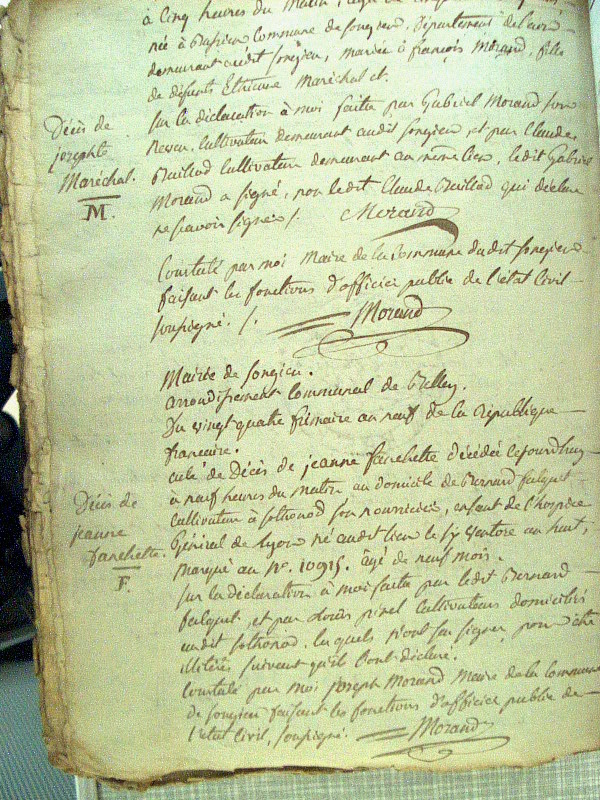 à Cinq heures du Matin, agée de
née à Commune de Songieu, Département de l'ain
demeurant audit Songieu, mariée à françois Morand, fille
de défunts Etienne Maréchal et.
sur la déclaration à moi faite par Gabriel Morand son
Neveu, Cultivateur demeurant audit Songieu, et par Claude
Cultivateur demeurant au même lieu, ledit Gabriel
Morand a signé, non ledit Claude qui déclare
ne scavoir signer /. Morand
Constaté par moi Maire de la Commune dudit Songieu
faisant les fonctions d'officier public de l'état Civil
soussigné. /. Morand
Décès de
josephte
Maréchal.
M.
Mairie de Songieu.
arrondissement Communal de Belley.
Du vingt quatre frimaire an neuf de la République
francaise.
acte de Décès de jeanne fanchette décédée cejourdhuy
à neuf heures du matin au domicile de Bernard falquet
Cultivateur à Sothonod son nourricier, enfant de l'hospice
Général de Lyon né audit lieu le six Ventose an huit,
marqué au No. 10915. âgé de neuf mois.
sur la déclaration à moi faite par ledit Bernard
falquet, et par Louis pinel Cultivateurs domiciliés
audit Sothonod, lesquels n'ont su signer, pour être
illitérés suivant qu'il l'ont déclaré.
Constaté par moi joseph Morand Maire de la Commune
de Songieu faisant les fonctions d'officier public de
l'état Civil, soussigné. Morand
Décès de
jeanne
fanchette.
F.